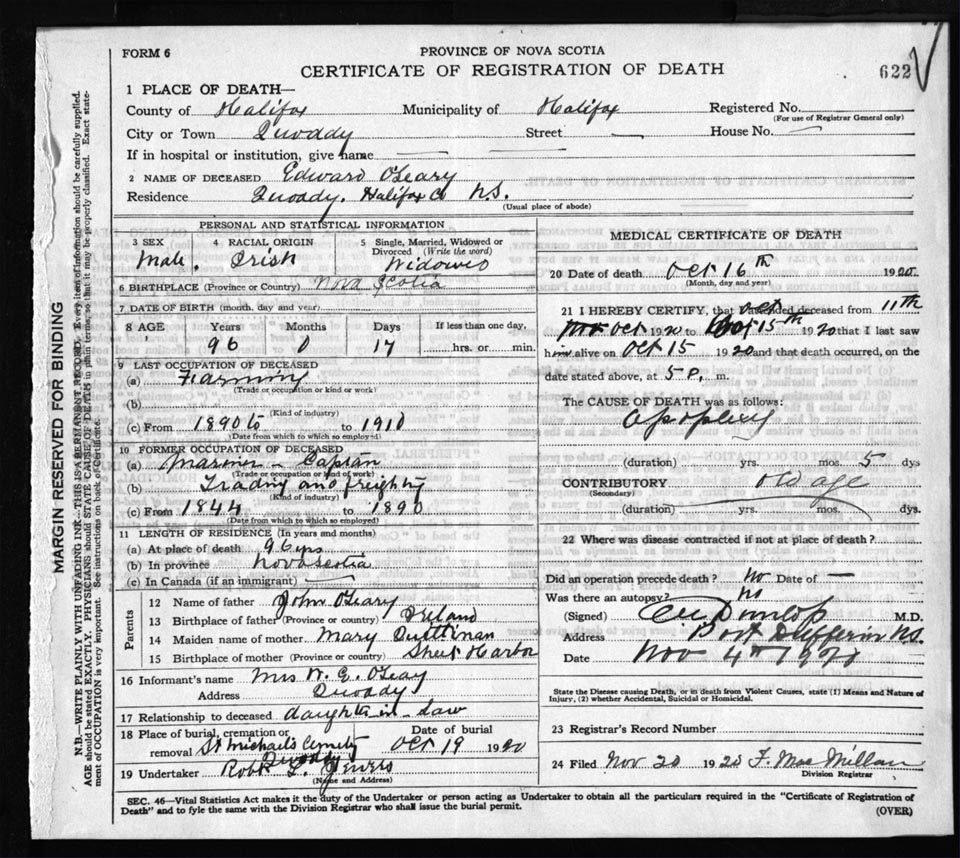 FORM 6
PROVINCE OF NOVA SCOTIA
CERTIFICATE OF REGISTRATION OF DEATH
622
1 PLACE OF DEATH—
County of Halifax Municipality of Halifax Registered No.
(For use of Registrar General only)
City or Town Quoddy Street — House No. —
If in hospital or institution, give name —
2 NAME OF DECEASED Edward O'Leary
Residence Quoddy. Halifax Co N.S.
(Usual place of abode)
PERSONAL AND STATISTICAL INFORMATION
3 SEX 4 RACIAL ORIGIN 5 Single, Married, Widowed or Divorced (Write the word)
Male. Irish Widowed
6 BIRTHPLACE (Province or Country) Nova Scotia
7 DATE OF BIRTH (month, day and year)
8 AGE Years Months Days If less than one day,
96 0 17 hrs. or min.
9 LAST OCCUPATION OF DECEASED
(a) Farming
(Trade or occupation or kind of work)
(b)
(Kind of industry)
(c) From 1890 to 1910
(Date from which to which so employed)
10 FORMER OCCUPATION OF DECEASED
(a) Mariner - Captain
(Trade or occupation or kind of work)
(b) Trading and freighting
(Kind of industry)
(c) From 1844 to 1890
(Date from which to which so employed)
11 LENGTH OF RESIDENCE (In years and months)
(a) At place of death 96 yrs
(b) In province Nova Scotia
(c) In Canada (if an immigrant) —
Parents
12 Name of father John O'Leary
13 Birthplace of father (Province or country) Ireland
14 Maiden name of mother Mary
15 Birthplace of mother (Province or country) Sheet Harbor
16 Informant's name Mrs W. E. O'Leary
Address Quoddy
17 Relationship to deceased daughter in - law
18 Place of burial, cremation or removal St Michael's Cemetery Quoddy Date of burial Oct 19 1920
19 Undertaker Robt L. Jewers
(Name and Address)
MEDICAL CERTIFICATE OF DEATH
20 Date of death Oct 16th 1920.
(Month, day and year)
21 I HEREBY CERTIFY, that I attended deceased from 11th
Oct 1920 to Oct 15th 1920 that I last saw
him alive on Oct 15 1920 and that death occurred, on the
date stated above, at 5 P. m.
The CAUSE OF DEATH was as follows:
Apoplexy
(duration) yrs. mos. 5 dys
CONTRIBUTORY old age
(Secondary)
(duration) yrs. mos. dys.
22 Where was disease contracted if not at place of death?
Did an operation precede death? No Date of —
Was there an autopsy? No
(Signed) Dunlop M.D.
Address Port Dufferin N.S.
Date Nov 4th 1920
State the Disease causing Death, or in death from Violent Causes, state (1) Means and Nature of
Injury, (2) whether Accidental, Suicidal or Homicidal.
23 Registrar's Record Number
24 Filed Nov 20 1920 F. MacMillan
Division Registrar
SEC. 46—Vital Statistics Act makes it the duty of the Undertaker or person acting as Undertaker to obtain all the particulars required in the "Certificate of Registration of
Death" and to fyle the same with the Division Registrar who shall issue the burial permit.
(OVER)
MARGIN RESERVED FOR BINDING
N.B.—WRITE PLAINLY WITH UNFADING INK—THIS IS A PERMANENT RECORD. Every item of information should be carefully supplied.
AGE should be stated EXACTLY. PHYSICIANS should STATE CAUSE OF DEATH in plain terms, so that it may be properly classified. Exact statement of OCCUPATION is very important. See instructions on back of Certificate.